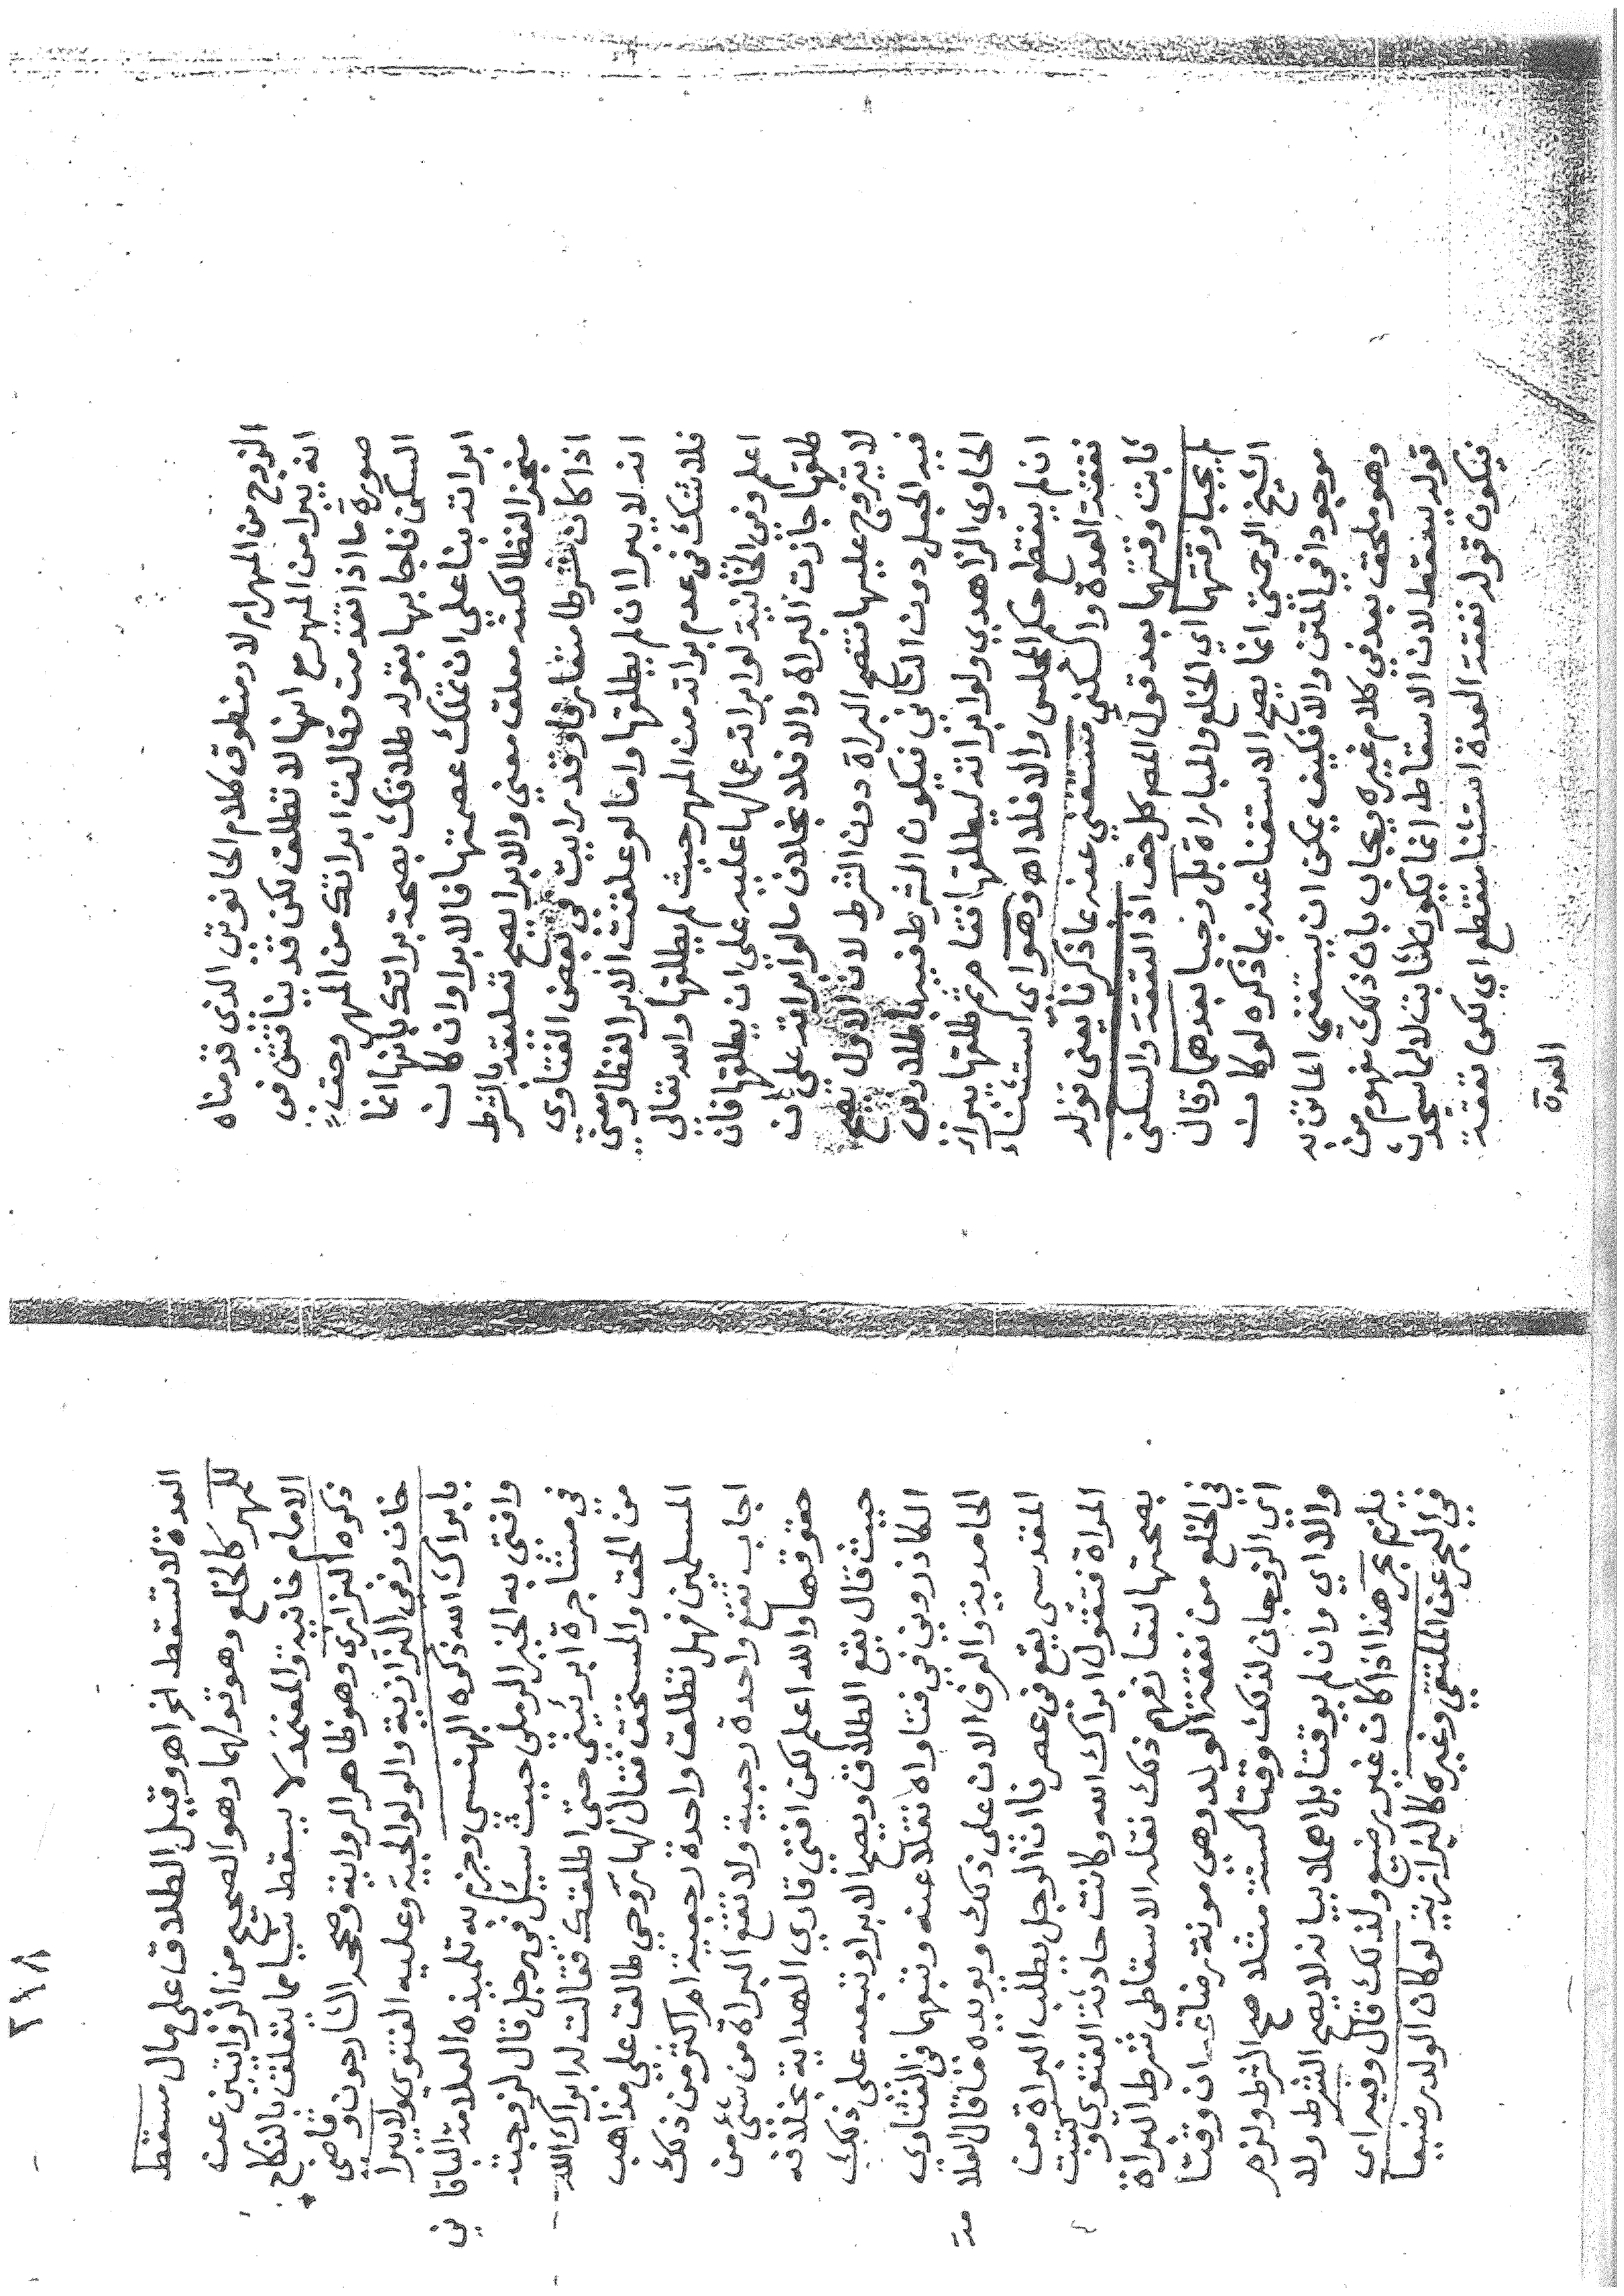 الزوج من المهر ام لا ومنطوق كلام الحانوتي الذي قدمناه
انه يبرا من المهر مع انها لا تطلق لكن قد يناقش في
صورة ما اذا تقدمت وقالت ابراتك من المهر وحق
السكنى فاجابها بقوله طلاقك بصحة براتك بانها انما
ابراته بنا على ان تملك عصمتها فالابرا وان كان
منجزا لفظا لكنه معلق معنى والابرا يصح تعليقه بالشرط
اذا كان شرطا متعارفا وقد رايت في بعض الفتاوي
انه لا يبرا ان لم يطلقها واما لو علقت الابرا لفظا ومعنى
فلا شك في عدم براته من المهر حيث لم يطلقها والله تعالى
اعلم وفي الخانية لو ابراته عما لها عليه على ان يطلقها فان
طلقها جازت البراة والا فلا بخلاف ما لو ابراته على ان
لا يتزوج عليها تصح البراة دون الشرط لان الاول يصح
فيه الجعل دون الثاني فيكون الشرط فيه باطلا وفي
الحاوي الزاهدي ولو ابراته ليطلقها فقام ثم طلقها يبرا
ان لم ينقطع حكم المجلس والا فلا اه وهو اي استثناء
نفقة العدة والسكنى مستغنى عنه بما ذكرنا يعنى قوله
ثابت وقتهما بعد قول المص كل حق اذ النفقة والسكنى
لم يجبا وقتهما اي الخلع والمباراة بل وجبا بعدهما وقال
الشيخ الرحمتي انما يصح الاستغنا عنه بما ذكره لو كان
موجودا في المتن والا فكيف يمكن ان يستغني الماتن به
وهو ملحق بعد في كلام غيره ويجاب بان ذلك مفهوم من
قوله يسقط لان الاسقاط انما يكون لثابت لا لما سيحدث
فيكون قوله نفقة العدة استثنا منقطع اي لكن نفقة
العدة
٢١٨
العدة لا تسقط اخراه وقيل الطلاق على مال مسقط
للمهر كالخلع وهو قولهما وهو الصحيح من الروايتين عن
الامام خانية والمعتمد لا يسقط شيا مما يتعلق بالنكاح
ذكره البزازي وهو ظاهر الرواية وصححه الشارحون وقاضي
خان وفي البزازية والولوالجية وعليه الفتوى ولا يبرا
بابراك الله ذكره البهنسي وجزم به تلميذه العلامة الباقاني
وافتى به الخير الرملي حيث سئل في رجل قال لزوجته
في مشاجرة ابرئيني حتى اطلقك فقالت له ابراك الله
من الحق والمستحق فقال لها روحي طالق على مذاهب
المسلمين فهل تطلق واحدة رجعية ام اكثر من ذلك
اجاب تقع واحدة رجعية ولا تقع البراة من شئ من
حقوقها والله اعلم لكن افتى قاري الهداية بخلافه
حيث قال يقع الطلاق ويصح الابرا وتبعه على ذلك
الكازروني في فتاواه نقلا عنه وتبعهما في الفتاوي
الحامدية والعرف الان على ذلك ويويده ما قال العلامة
المقدسي يقع في عصرنا ان الرجل يطلب البراة من
المراة فتقول ابراك الله وكانت حادثة الفتوى وكتبت
بصحتها لتعارفهم ذلك نقله الاسقاطي شرط البراة
في الخلع من نفقة الولد وهي مونة رضاع ان وقتا
اي الزوجان لذلك وقتا كسنة مثلا صح الشرط ولزم
والا اي وان لم يوقتا بل اهملا بيانه لا يصح الشرط ولا
يلزم بحر هذا اذا كان غير رضيع ولذلك قال وفيه اي
في البحر عن الملتقى وغيره كالبزازية لو كان الولد رضيعا